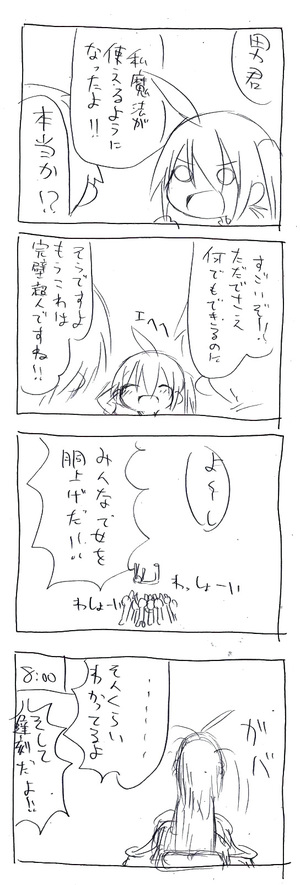 男君
私魔法が
使えるように
なったよ!!
本当か!?
すごいぞー!
ただでさえ
何でもできるのに
エヘヘ
そうですよ
もうこれは
完璧超人ですね!!
よーし
みんなで女を
胴上げだ!!
わっしょーい
わしょーい
ガバ
………
そんくらい
わかってるよ
8:00
そして
遅刻だよ!!